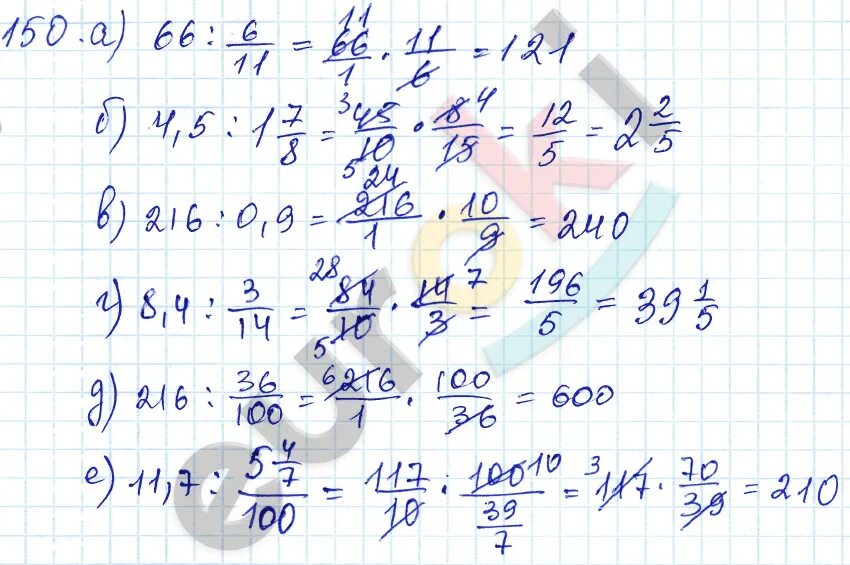 150. а) 66 : 6/11 = 66/1 · 11/6 = 121
б) 4,5 : 1 7/8 = 45/10 · 8/15 = 12/5 = 2 2/5
в) 216 : 0,9 = 216/1 · 10/9 = 240
г) 8,4 : 3/14 = 84/10 · 14/3 = 196/5 = 39 1/5
д) 216 : 36/100 = 216/1 · 100/36 = 600
е) 11,7 : (5 4/7)/100 = 117/10 · 100/(39/7) = 117 · 70/39 = 210
euroki